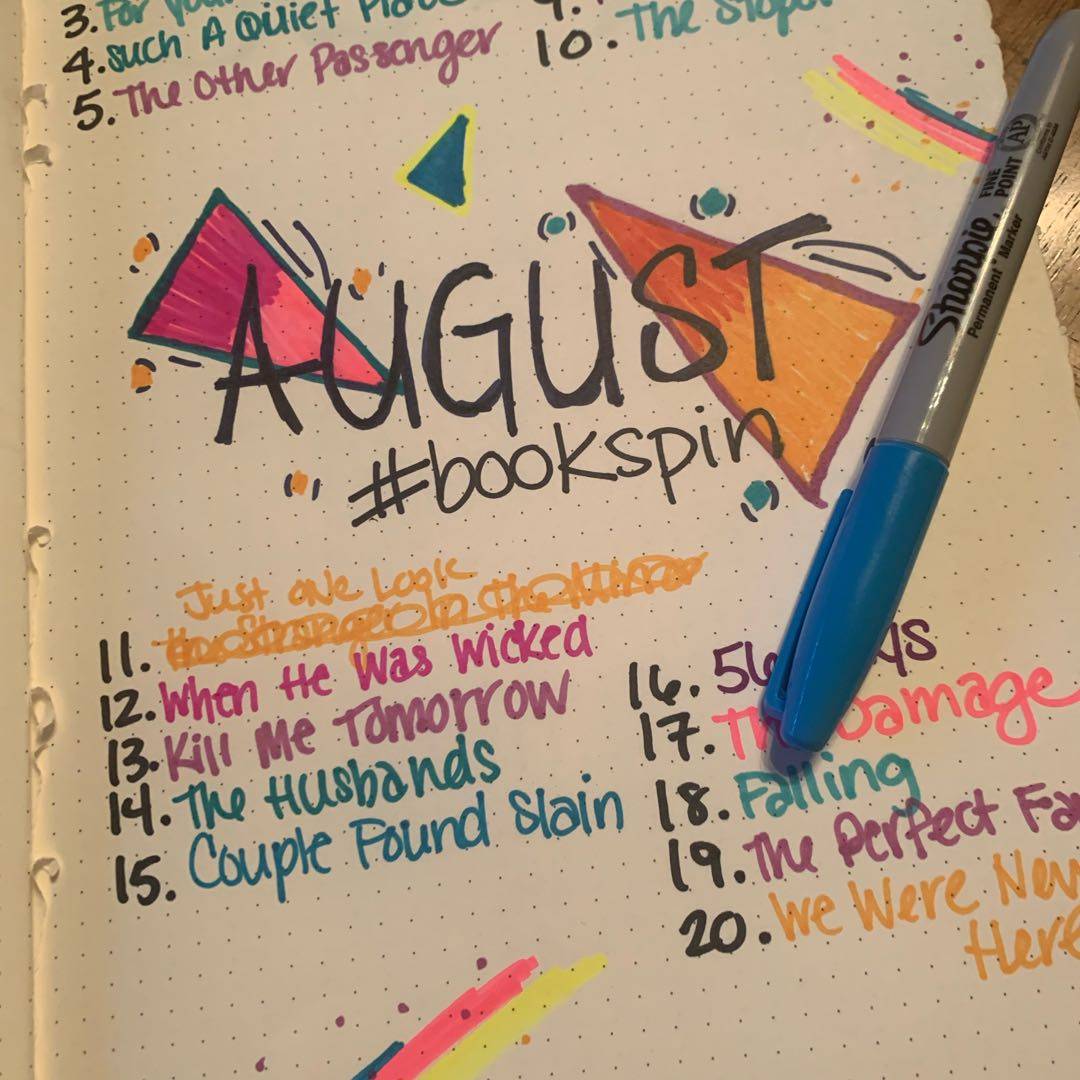 3. For
4. Such A Quiet Place
5. The Other Passenger
9.
10. The
AUGUST
#bookspin
Just One Look
11.
12. When He Was Wicked
13. Kill Me Tomorrow
14. The Husbands
15. Couple Found Slain
16. 56
17. The Damage
18. Falling
19. The Perfect Fa
20. We Were Nev
Here
Sharpie
FINE POINT
Permanent Marker
AP